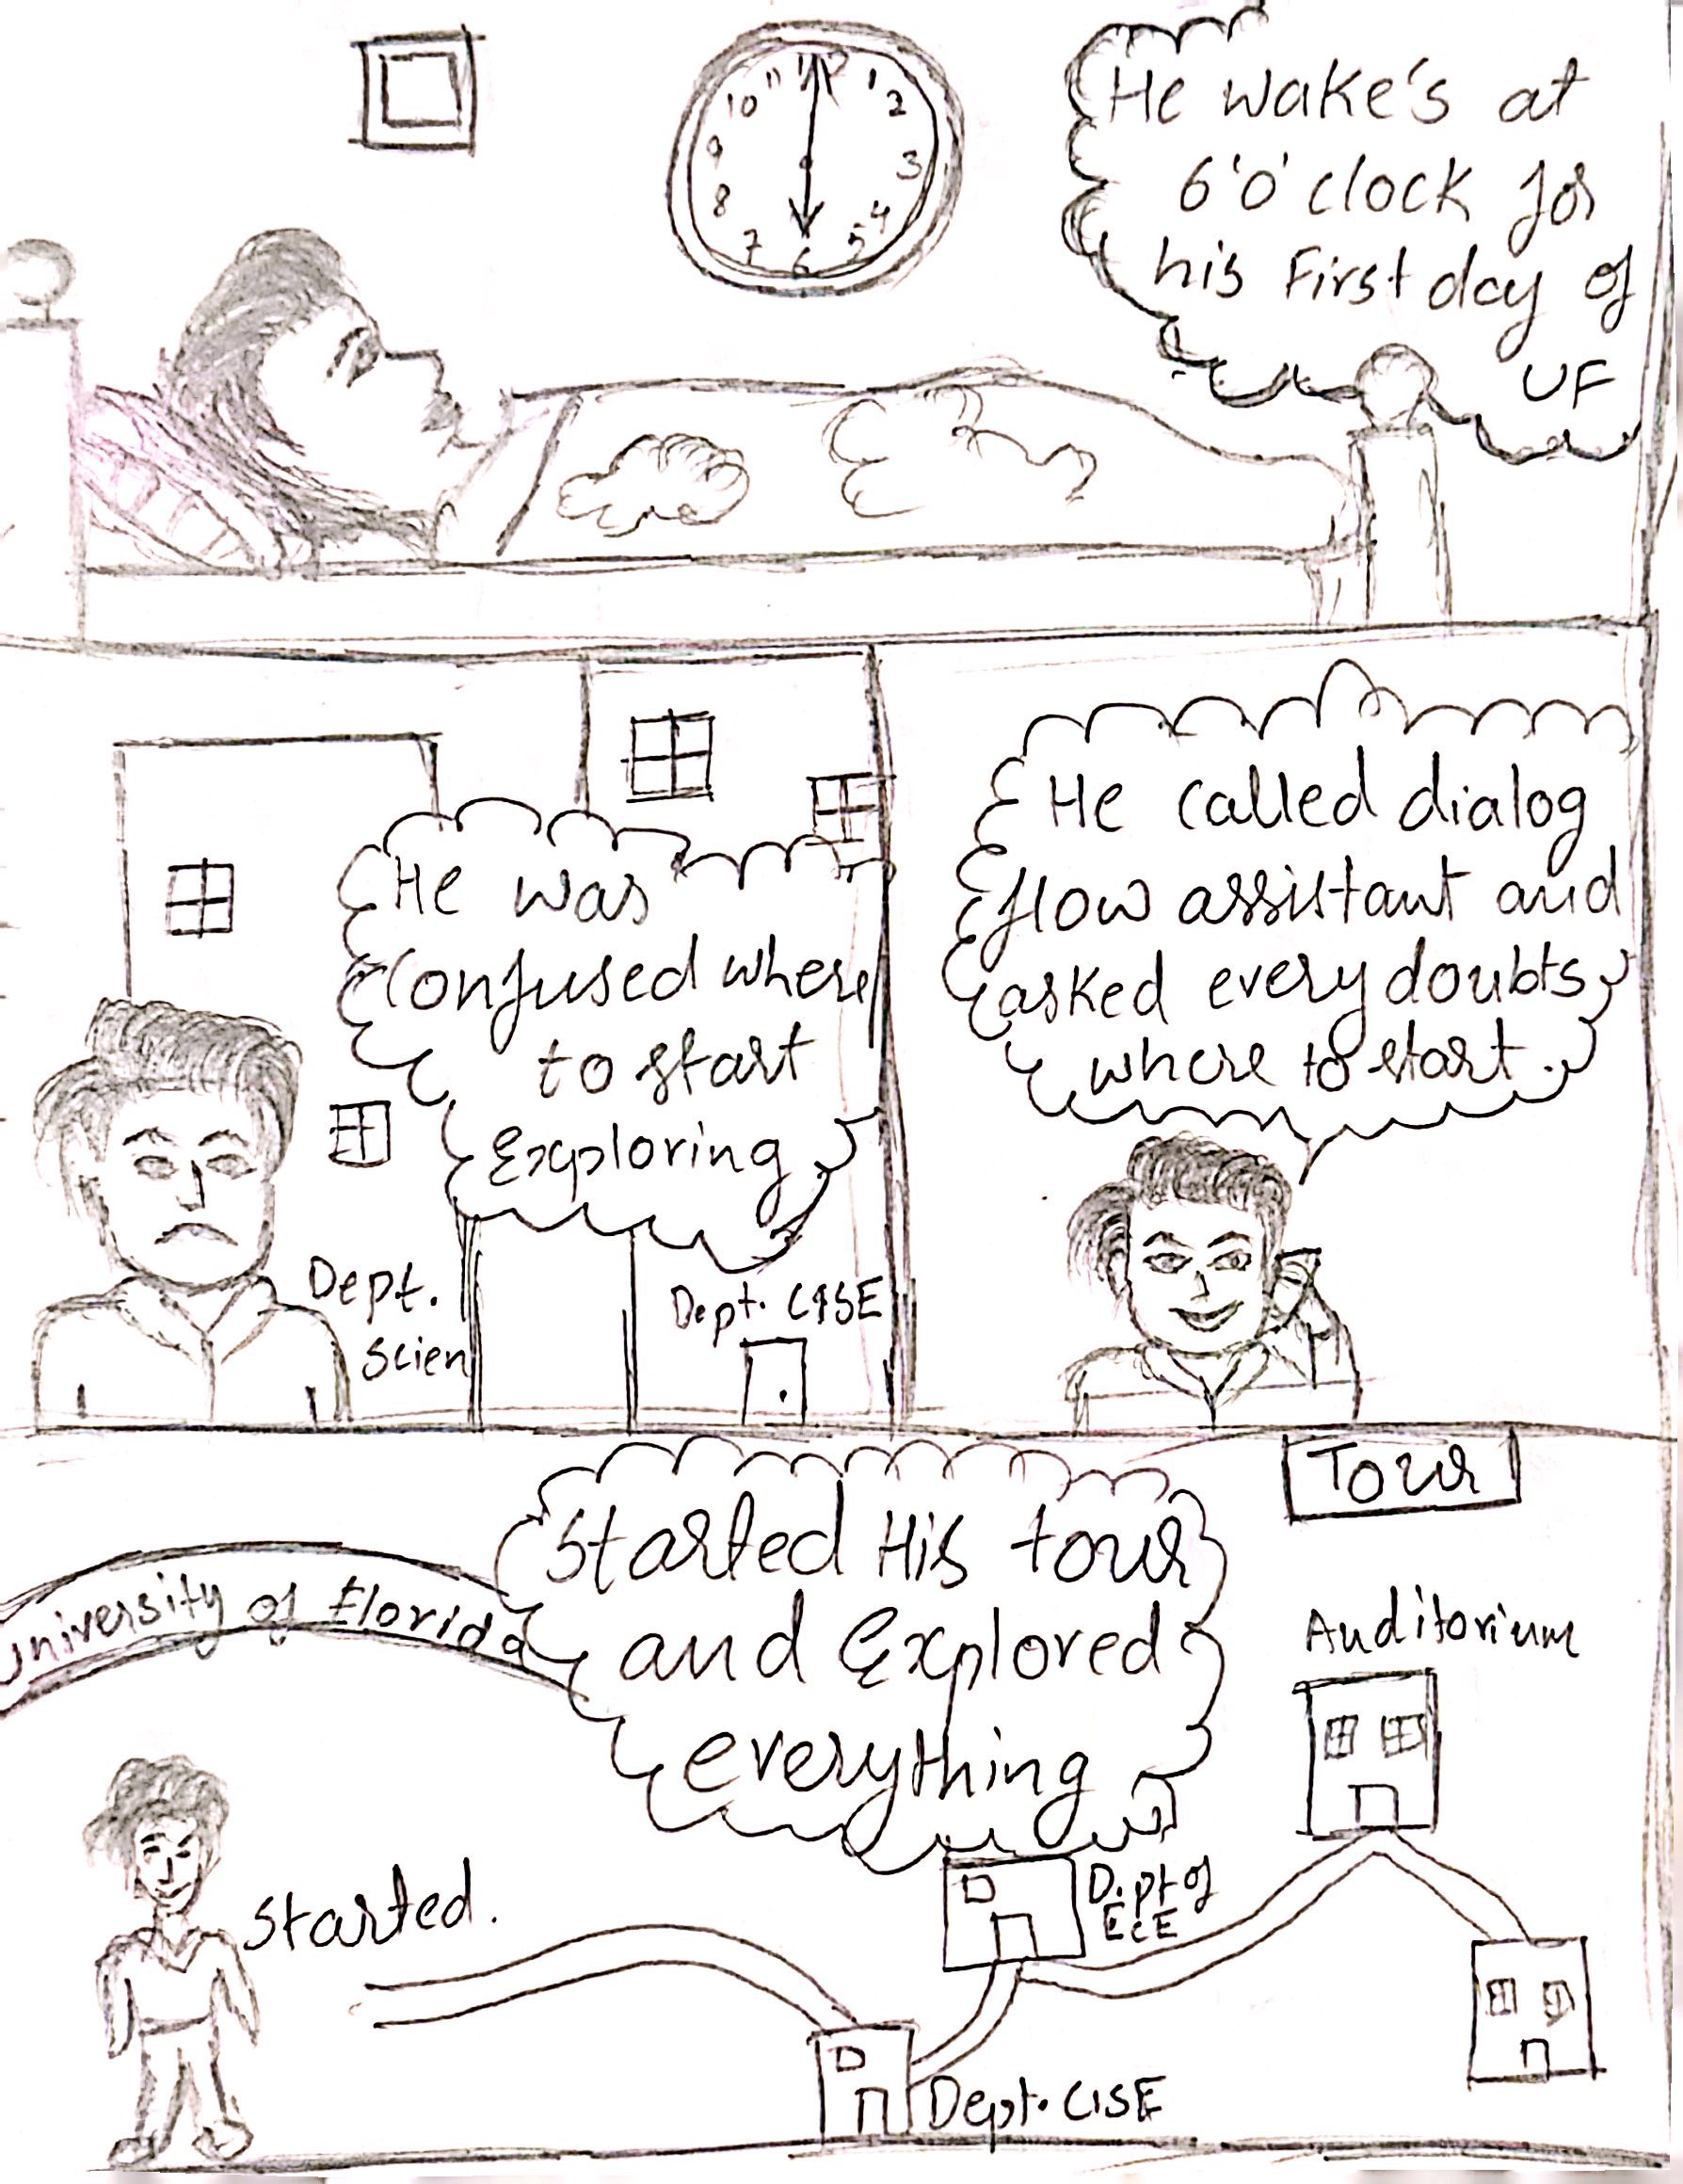 11 12 1
10 2
9 3
8 4
7 6 5
He wake's at
6'o'clock for
his First day of
UF
He was
confused where
to start
Exploring
Dept.
Scien
Dept. CISE
He called dialog
flow assistant and
asked every doubts
where to start.
Tour
Started His tour
and Explored
everything
University of Florida
Auditorium
Started.
Dept of
ECE
Dept. CISE